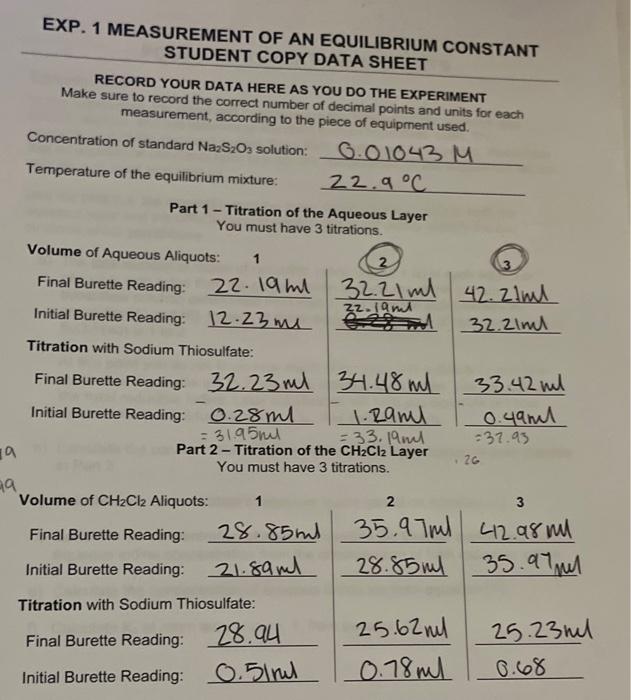 EXP. 1 MEASUREMENT OF AN EQUILIBRIUM CONSTANT
STUDENT COPY DATA SHEET
RECORD YOUR DATA HERE AS YOU DO THE EXPERIMENT
Make sure to record the correct number of decimal points and units for each
measurement, according to the piece of equipment used.
Concentration of standard Na₂S₂O₃ solution: 0.01043 M
Temperature of the equilibrium mixture: 22.9 °C
Part 1 – Titration of the Aqueous Layer
You must have 3 titrations.
Volume of Aqueous Aliquots: 1 2 3
Final Burette Reading: 22.19ml 32.21ml 42.21ml
22.19ml
Initial Burette Reading: 12.23ml 32.21ml
Titration with Sodium Thiosulfate:
Final Burette Reading: 32.23ml 34.48ml 33.42ml
Initial Burette Reading: - 0.28ml - 1.29ml - 0.49ml
= 31.95ml = 33.19ml =32.93
Part 2 – Titration of the CH₂Cl₂ Layer
.26
You must have 3 titrations.
Volume of CH₂Cl₂ Aliquots: 1 2 3
Final Burette Reading: 28.85ml 35.97ml 42.98ml
Initial Burette Reading: 21.89ml 28.85ml 35.97ml
Titration with Sodium Thiosulfate:
Final Burette Reading: 28.94 25.62ml 25.23ml
Initial Burette Reading: 0.51ml 0.78ml 0.68